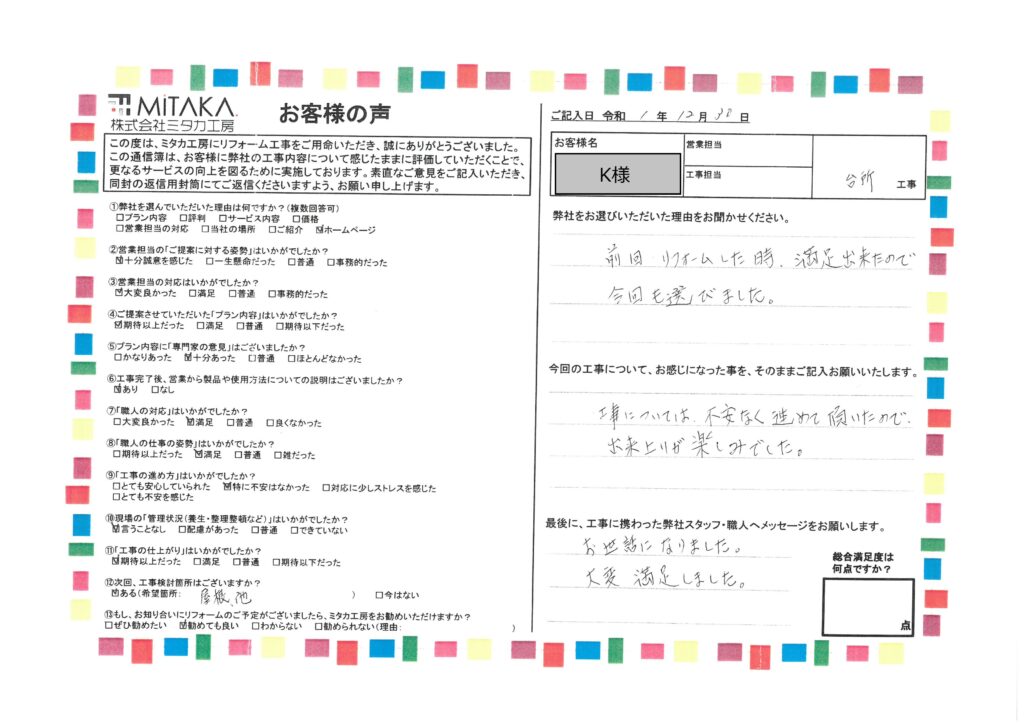 MiTAKA
株式会社ミタカ工房
お客様の声
この度は、ミタカ工房にリフォーム工事をご用命いただき、誠にありがとうございました。
この通信簿は、お客様に弊社の工事内容について感じたままに評価していただくことで、
更なるサービスの向上を図るために実施しております。素直なご意見をご記入いただき、
同封の返信用封筒にてご返信くださいますよう、お願い申し上げます。
①弊社を選んでいただいた理由は何ですか?(複数回答可)
□プラン内容 □評判 □サービス内容 □価格
□営業担当の対応 □当社の場所 □ご紹介 ☑ホームページ
②営業担当の「ご提案に対する姿勢」はいかがでしたか?
☑十分誠意を感じた □一生懸命だった □普通 □事務的だった
③営業担当の対応はいかがでしたか?
☑大変良かった □満足 □普通 □事務的だった
④ご提案させていただいた「プラン内容」はいかがでしたか?
☑期待以上だった □満足 □普通 □期待以下だった
⑤プラン内容に「専門家の意見」はございましたか?
□かなりあった ☑十分あった □普通 □ほとんどなかった
⑥工事完了後、営業から製品や使用方法についての説明はございましたか?
☑あり □なし
⑦「職人の対応」はいかがでしたか?
□大変良かった ☑満足 □普通 □良くなかった
⑧「職人の仕事の姿勢」はいかがでしたか?
□期待以上だった ☑満足 □普通 □雑だった
⑨「工事の進め方」はいかがでしたか?
□とても安心していられた ☑特に不安はなかった □対応に少しストレスを感じた
□とても不安を感じた
⑩現場の「管理状況(養生・整理整頓など)」はいかがでしたか?
☑言うことなし □配慮があった □普通 □できていない
⑪「工事の仕上がり」はいかがでしたか?
☑期待以上だった □満足 □普通 □期待以下だった
⑫次回、工事検討箇所はございますか?
☑ある(希望箇所: 屋根、他 ) □今はない
⑬もし、お知り合いにリフォームのご予定がございましたら、ミタカ工房をお勧めいただけますか?
□ぜひ勧めたい ☑勧めても良い □わからない □勧められない(理由: )
ご記入日 令和 1 年 12月 30 日
お客様名
K様
営業担当
工事担当
台所 工事
弊社をお選びいただいた理由をお聞かせください。
前回 リフォームした時、満足出来たので
今回も選びました。
今回の工事について、お感じになった事を、そのままご記入お願いいたします。
工事については、不安なく進めて頂いたので、
出来上りが楽しみでした。
最後に、工事に携わった弊社スタッフ・職人へメッセージをお願いします。
お世話になりました。
大変 満足しました。
総合満足度は
何点ですか?
点